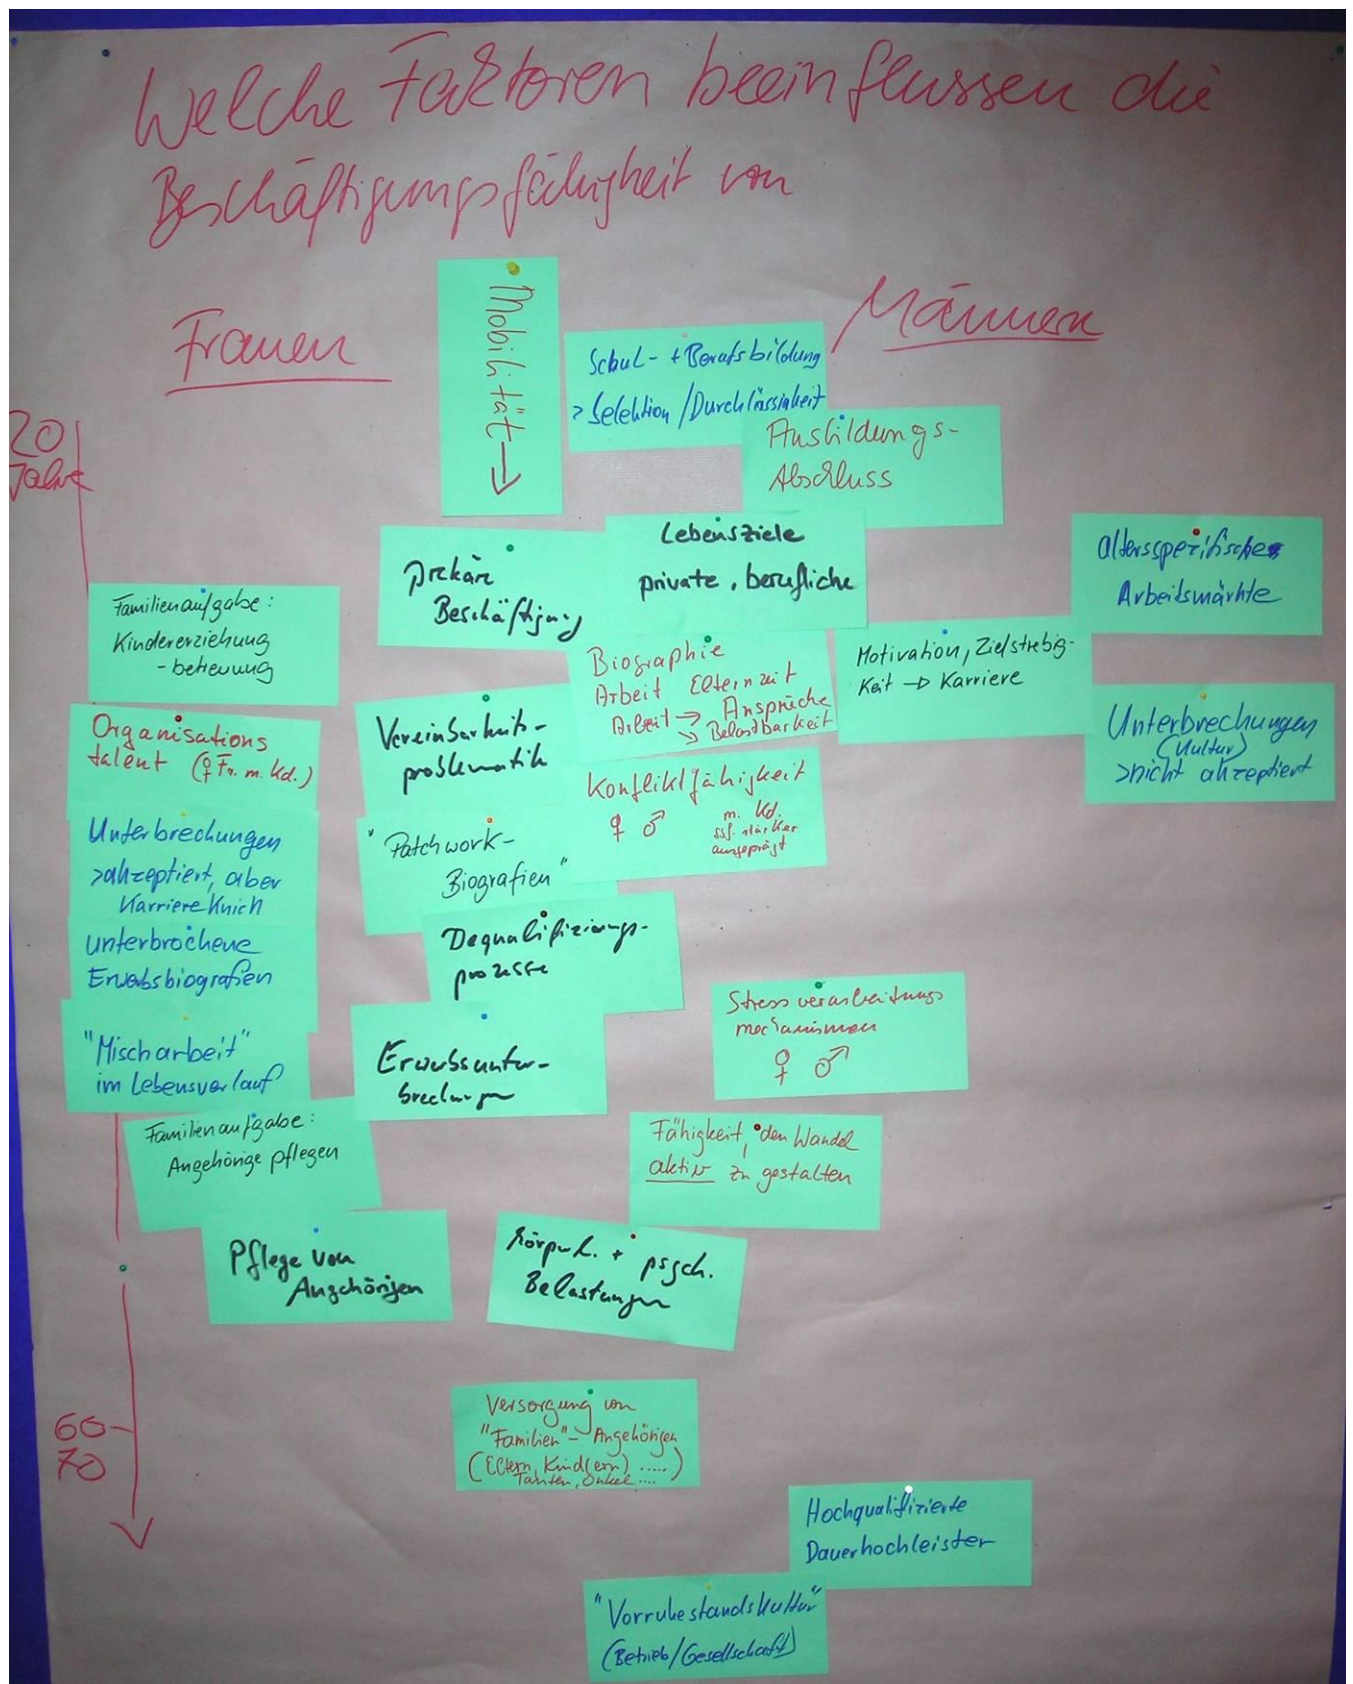 Welche Faktoren beeinflussen die
Beschäftigungsfähigkeit von
Frauen
Männern
Mobilität →
Schul- + Berufsbildung
> Selektion / Durchlässigkeit
Ausbildungs-
Abschluss
20
Jahre
Lebensziele
private, berufliche
prekäre
Beschäftigung
altersspezifische
Arbeitsmärkte
Familienaufgabe:
Kindererziehung
- betreuung
Biographie
Arbeit Elternzeit
Arbeit → Ansprüche
↘ Belastbarkeit
Motivation, Zielstrebig-
keit → Karriere
Organisations
talent (♀ Fr. m. Kd.)
Vereinbarkeits-
problematik
Unterbrechungen
(Kultur)
> nicht akzeptiert
Konfliktfähigkeit
♀ ♂ m. Kd.
ggf. stärker
ausgeprägt
Unterbrechungen
> akzeptiert, aber
Karriereknick
"Patchwork-
Biografien"
unterbrochene
Erwerbsbiografien
Dequalifizierungs-
prozesse
"Mischarbeit"
im Lebensverlauf
Erwerbsunter-
brechungen
Stressverarbeitungs
mechanismen
♀ ♂
Familienaufgabe:
Angehörige pflegen
Fähigkeit, den Wandel
aktiv zu gestalten
Pflege von
Angehörigen
körperl. + psych.
Belastungen
60
70
Versorgung von
"Familien"- Angehörigen
(Eltern, Kind(ern) .....)
Tanten, Onkel ....
Hochqualifizierte
Dauerhochleister
"Vorruhestandskultur"
(Betrieb/Gesellschaft)